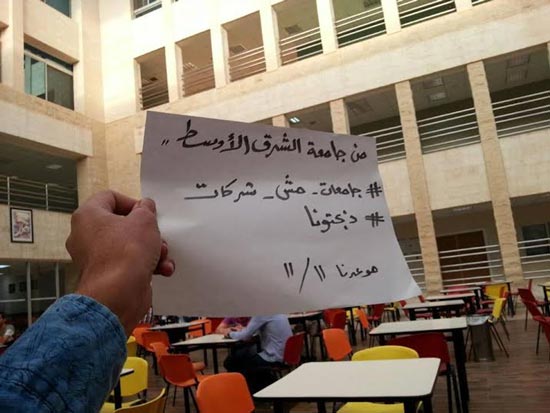 من جامعة الشرق الأوسط "
# جامعات - مش - شركات
# ذبحتونا
موعدنا ١١/١١